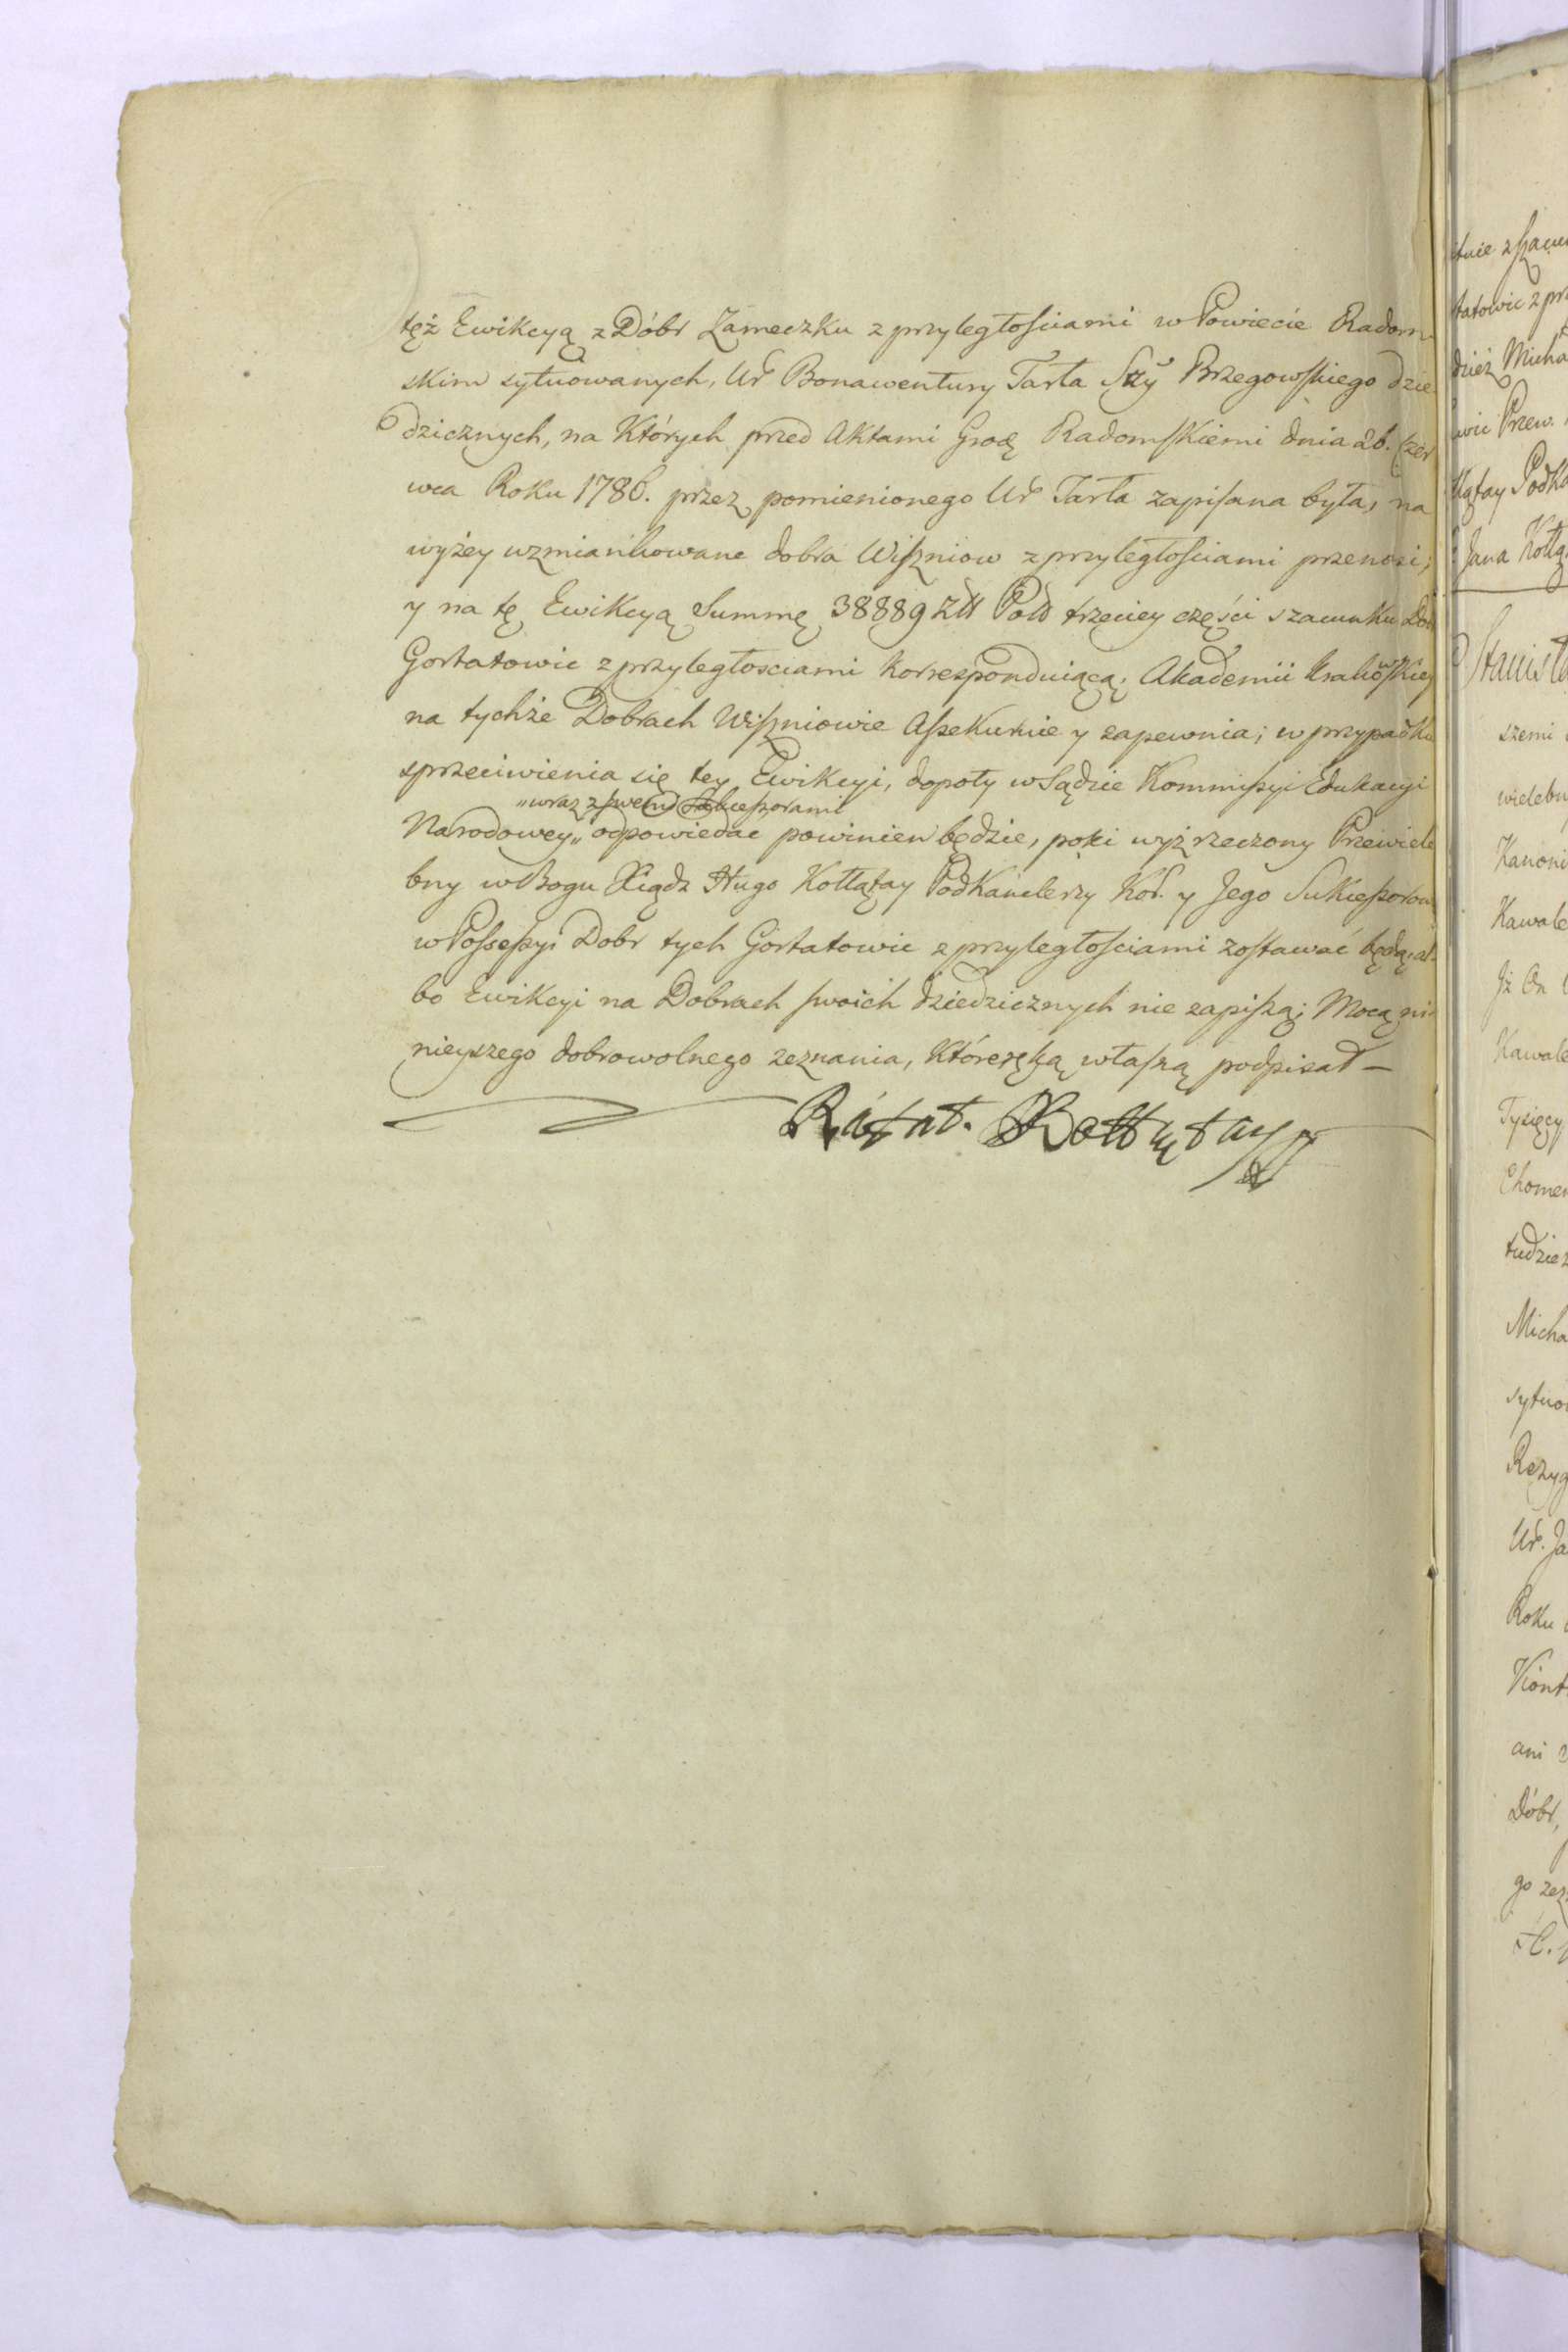 tęż Ewikcyą z Dóbr Zameczku z przyległościami w Powiecie Radom
skim sytuowanych, Ur Bonawentury Tarła Sty Brzegowskiego dzie
dzicznych, na Których przed Aktami Grodz Radomskiemi dnia 26. Czer
wca Roku 1786. przez pomienionego Ur Tarła zapisana była, na
wyżey wzmiankowane dobra Wiszniow z przyległościami przenosi;
y na tę Ewikcyą Summę 38889 Złł Pols trzeciey części szacunku Dob
Gortatowic z przyległosciami korrespondującą, Akademii Krakowskiey
na tychże Dobrach Wiszniowie Assekuruie y zapewnia; w przypadku
sprzeciwienia się tey Ewikcyi, dopoty w Sądzie Kommissyi Edukacyi
„wraz z swemi Sukcessorami
Narodowey„ odpowiedac powinien będzie, poki wyż rzeczony Przewiele
bny w Bogu Xiądz Hugo Kołłątay PodKanclerzy Kor. y Jego Sukcessorow
w Possessyi Dobr tych Gortatowic z przyległościami zostawać będą, al
bo Ewikcyi na Dobrach swoich dziedzicznych nie zapiszą; Mocą ni
nieyszego dobrowolnego zeznania, Które ręką własną podpisał –
Ráfał. Kołłątay
szemi
Kanoni
Kawale
Jż On
Kawale
Tysięcy
tudzież
Micha
sytuo
Rezyg
Ur. Ja
Roku
ani
Dóbr,